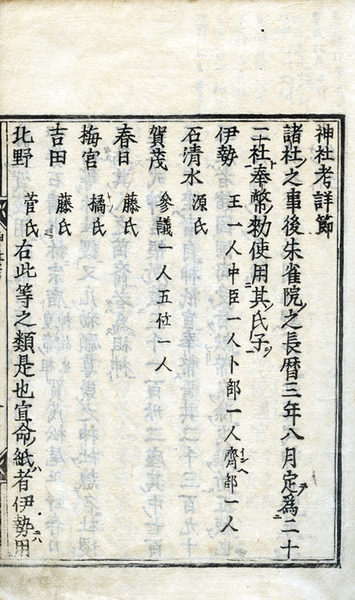 神社考詳節
諸社之事後朱雀院之長暦三年八月定爲二十
二社奉幣勅使用其氏子
伊勢 王一人中臣一人卜部一人齊部一人
石清水 源氏
賀茂 參議一人五位一人
春日 藤氏
梅宮 橘氏
吉田 藤氏
北野 菅氏右此等之類是也宣命紙者伊勢用